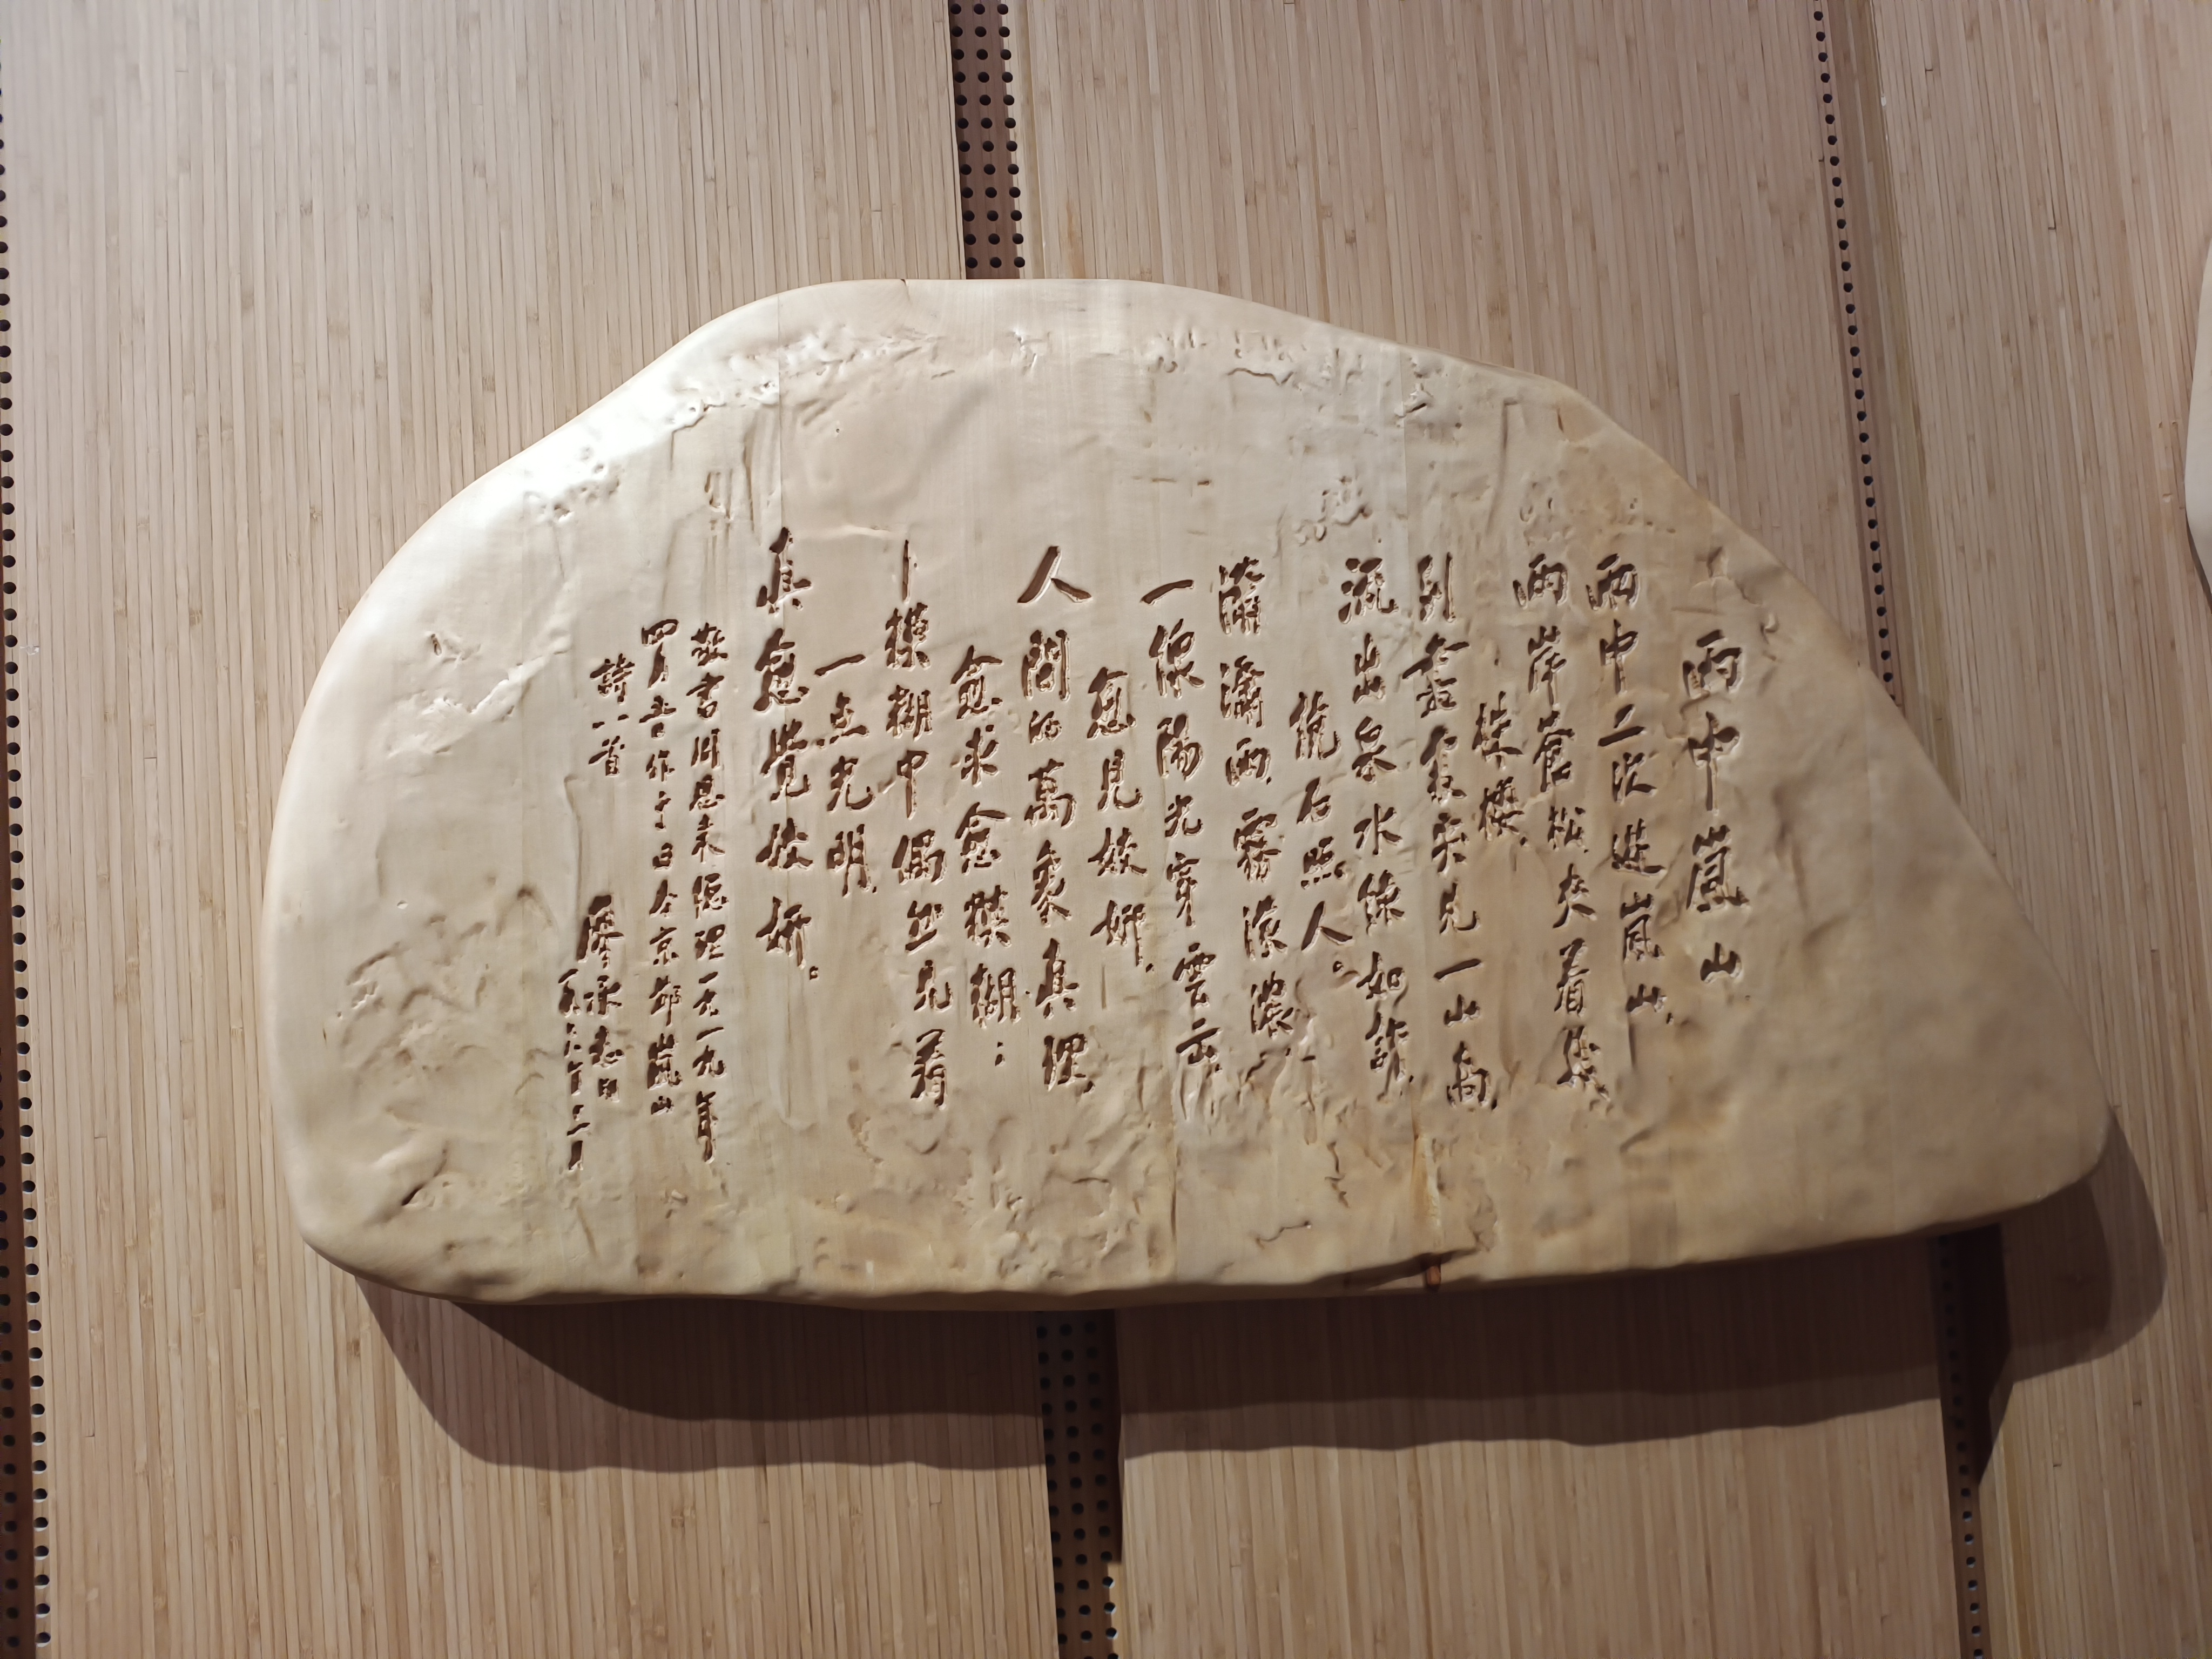 雨中嵐山
雨中二次遊嵐山，
兩岸蒼松，夾着幾
株櫻。
到盡處突見一山高，
流出泉水綠如許，
繞石照人。
瀟瀟雨，霧濛濃；
一線陽光穿雲出，
愈見姣妍。
人間的萬象真理，
愈求愈模糊；
——模糊中偶然見着
一点光明，
真愈覺姣妍。
敬書周恩来總理一九一九年
四月五日作于日本京都嵐山
詩一首
廖承志